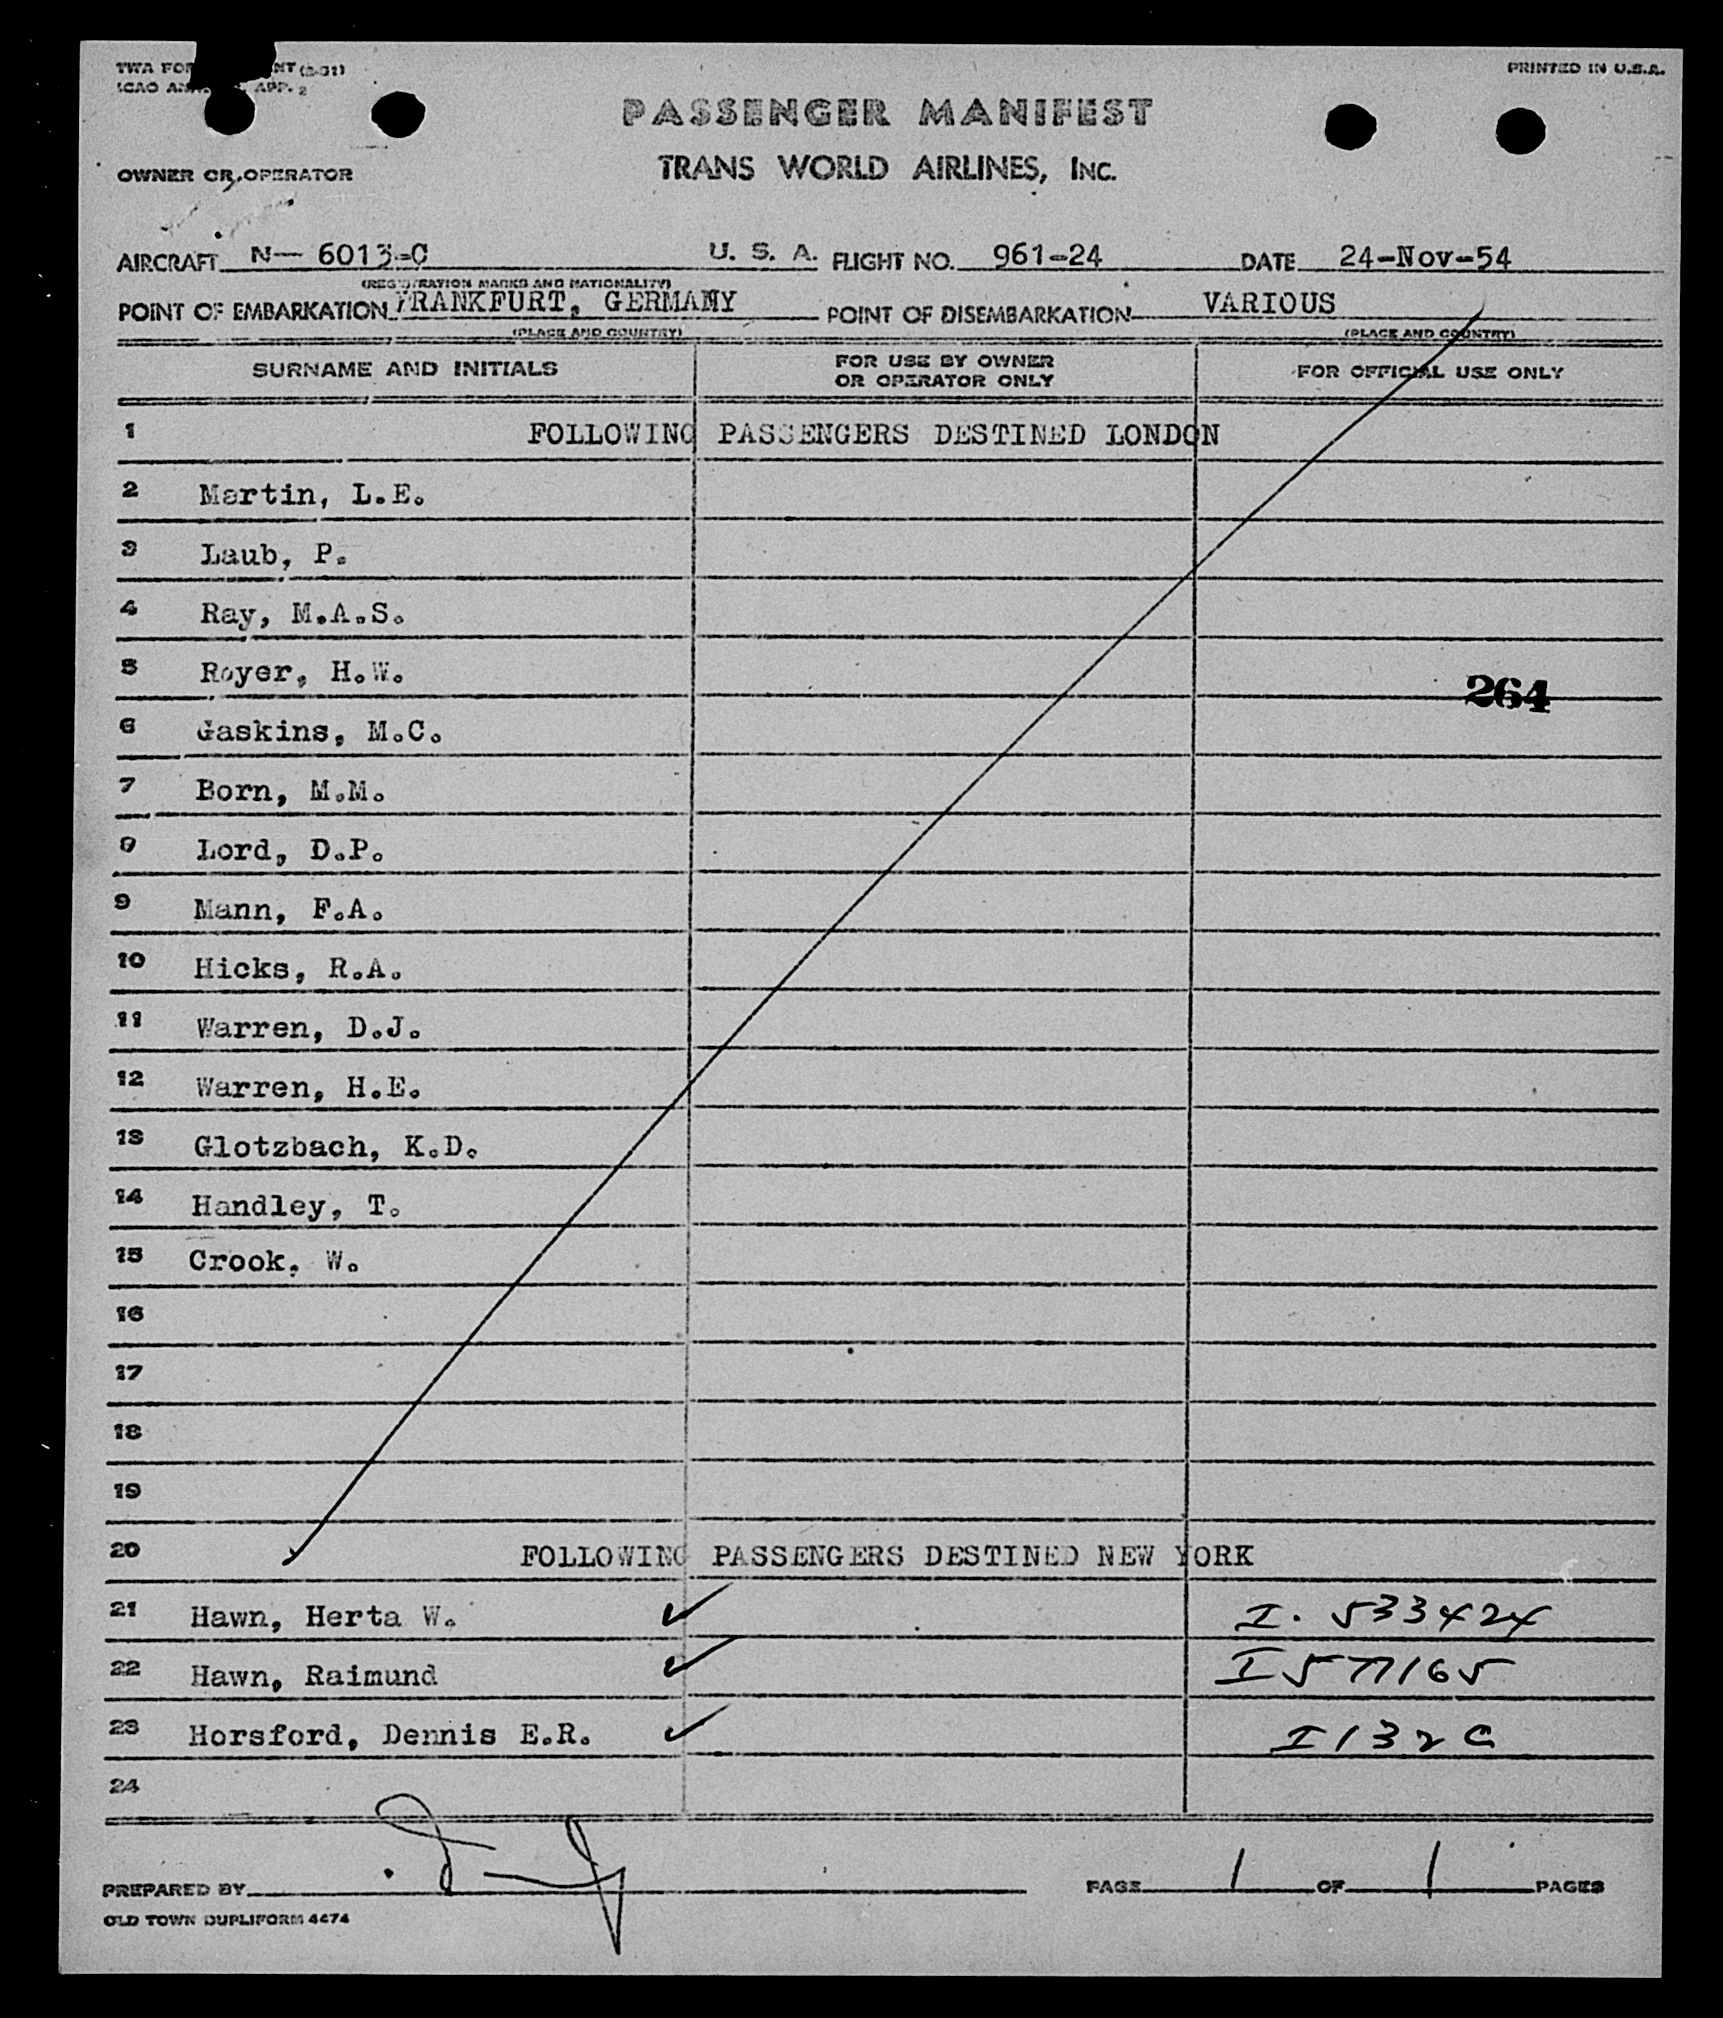 PRINTED IN U.S.A.
PASSENGER MANIFEST
TRANS WORLD AIRLINES, INC.
OWNER OR OPERATOR
AIRCRAFT N— 6013-C U. S. A. FLIGHT NO. 961-24 DATE 24-Nov-54
(REGISTRATION MARKS AND NATIONALITY)
POINT OF EMBARKATION FRANKFURT, GERMANY POINT OF DISEMBARKATION VARIOUS
(PLACE AND COUNTRY) (PLACE AND COUNTRY)
SURNAME AND INITIALS FOR USE BY OWNER OR OPERATOR ONLY FOR OFFICIAL USE ONLY
1 FOLLOWING PASSENGERS DESTINED LONDON
2 Martin, L.E.
3 Laub, P.
4 Ray, M.A.S.
5 Royer, H.W.
264
6 Gaskins, M.C.
7 Born, M.M.
8 Lord, D.P.
9 Mann, F.A.
10 Hicks, R.A.
11 Warren, D.J.
12 Warren, H.E.
13 Glotzbach, K.D.
14 Handley, T.
15 Crook, W.
16
17
18
19
20 FOLLOWING PASSENGERS DESTINED NEW YORK
21 Hawn, Herta W. ✓ I. 533424
22 Hawn, Raimund ✓ I 577165
23 Horsford, Dennis E.R. ✓ I 132 C
24
PREPARED BY PAGE 1 OF 1 PAGES
OLD TOWN DUPLIFORM 4474